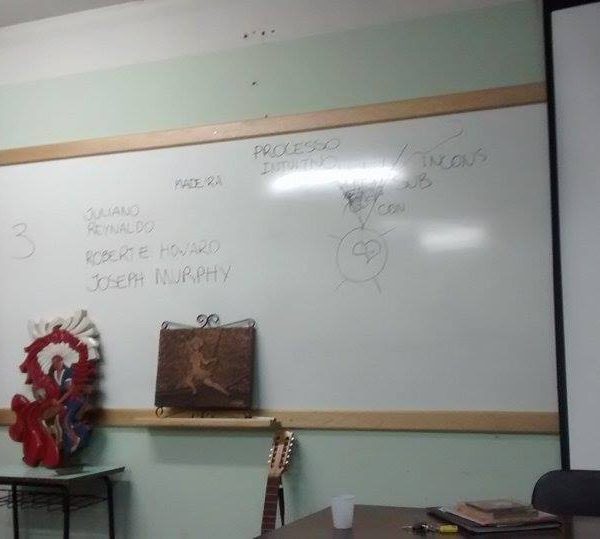 PROCESSO
INTUITIVO
INCONS
SUB
CON
MADEIRA
3
JULIANO
REYNALDO
ROBERT E HOWARD
JOSEPH MURPHY